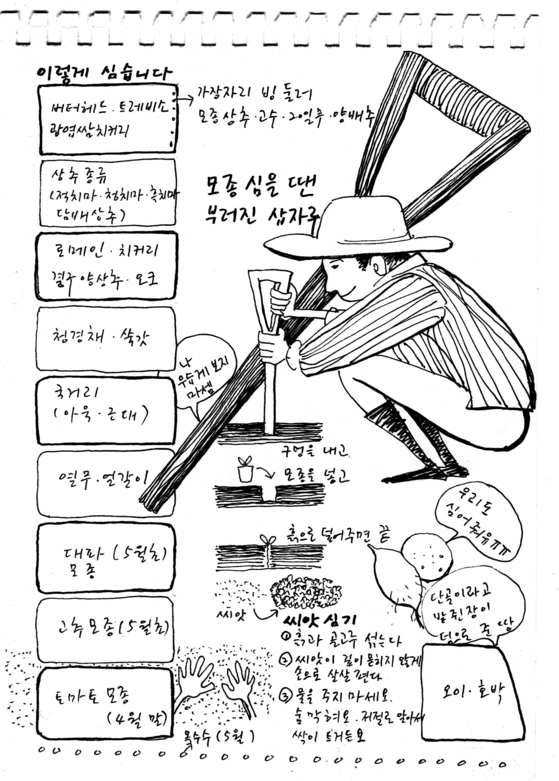 이렇게 심습니다
버터헤드·트레비소
광엽쌈치커리
가장자리 빙 둘러
모종상추·고수·20일무·양배추
상추 종류
(적치마·청치마·흑치마
담배상추)
모종 심을 땐
부러진 삽자루
로메인·치커리
결구 양상추·오크
청경채·쑥갓
나
우습게 보지
마셈
국거리
(아욱·근대)
구멍을 내고
모종을 넣고
열무·얼갈이
흙으로 덮어주면 끝
우리도
심어줘유ㅠㅠ
대파 (5월초)
모종
고추 모종(5월초)
씨앗
씨앗 심기
① 흙과 골고루 섞는다
② 씨앗이 깊이 묻히지 않게
손으로 살살 편다
③ 물을 주지 마세요.
숨 막혀요. 저절로 알아서
싹이 트거든요
단골이라고
밭쥔장이
덤으로 준 땅
오이·호박
토마토 모종
(4월 말)
옥수수(5월)